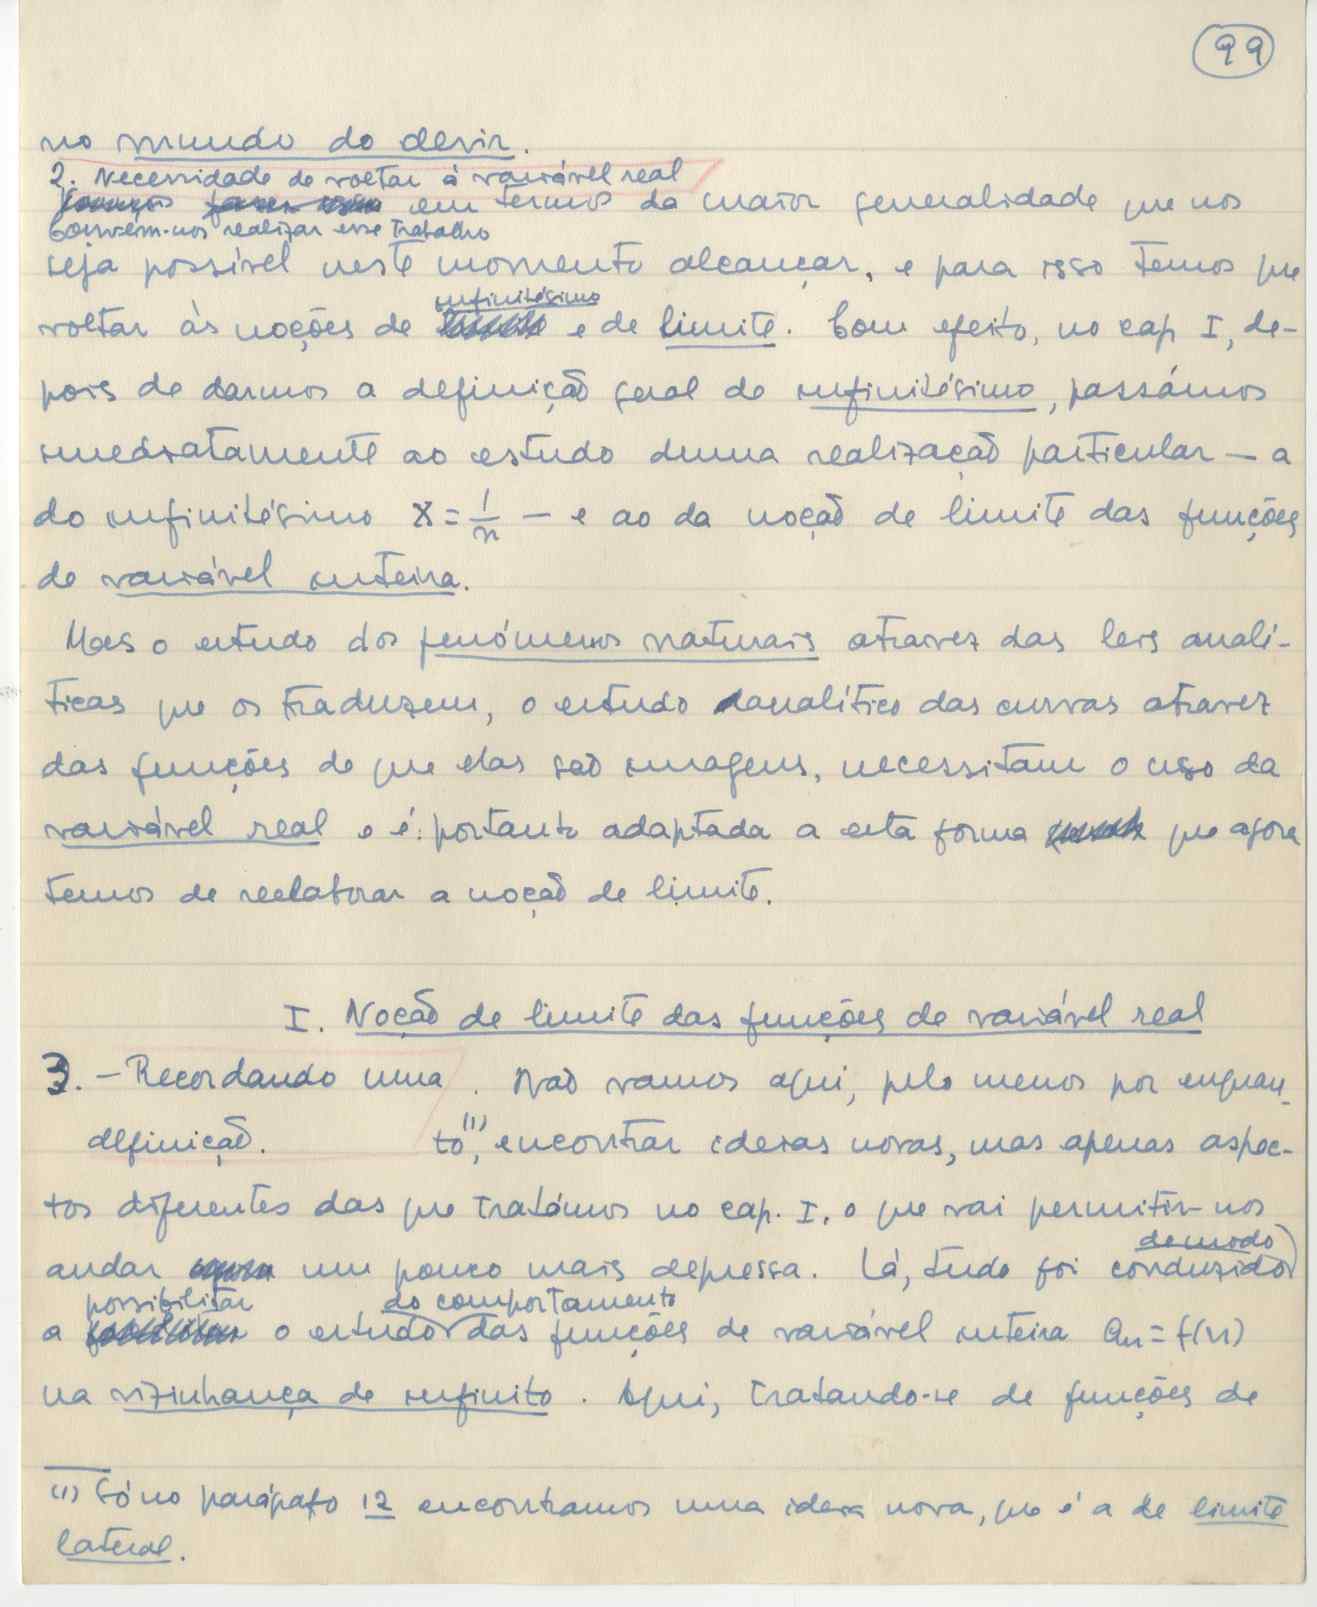 99
no mundo do devir.
2. Necessidade de voltar à variável real
em termos da maior generalidade que nos
Convém-nos realizar esse trabalho
seja possível neste momento alcançar, e para isso temos que
infinitésimo
voltar às noções de e de limite. Com efeito, no cap I, de-
pois de darmos a definição geral de infinitésimo, passámos
imediatamente ao estudo duma realização particular — a
do infinitésimo x = 1/n — e ao da noção de limite das funções
de variável inteira.
Mas o estudo dos fenómenos naturais atravez das leis analí-
ticas que os traduzem, o estudo analítico das curvas atravez
das funções de que elas são imagens, necessitam o uso da
variável real e é portanto adaptada a esta forma que agora
temos de reelaborar a noção de limite.
I. Noção de limite das funções de variável real
3. — Recordando uma . Não vamos aqui, pelo menos por enquan-
definição. to(1), encontrar ideias novas, mas apenas aspec-
tos diferentes das que tratámos no cap. I, o que vai permitir-nos
de modo
andar um pouco mais depressa. Lá, tudo foi conduzido
possibilitar do comportamento
a o estudo das funções de variável inteira an = f(n)
na vizinhança de infinito. Aqui, tratando-se de funções de
(1) Só no parágrafo 12 encontramos uma ideia nova, que é a de limite
lateral.